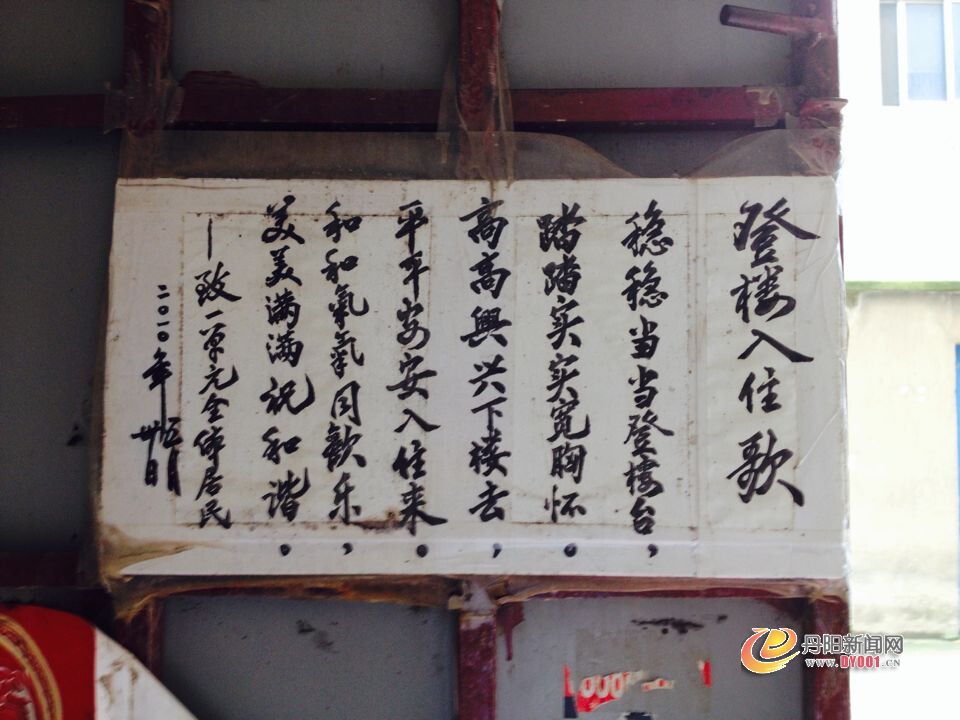 登楼入住歌
稳稳当当登楼台，
踏踏实实宽胸怀。
高高興兴下楼去，
平平安安入住来。
和和氣氣同歡乐，
美美满满祝和谐。
—致一单元全体居民
二〇一〇年
五月
卅日
丹阳新闻网
WWW.DY001.CN
000